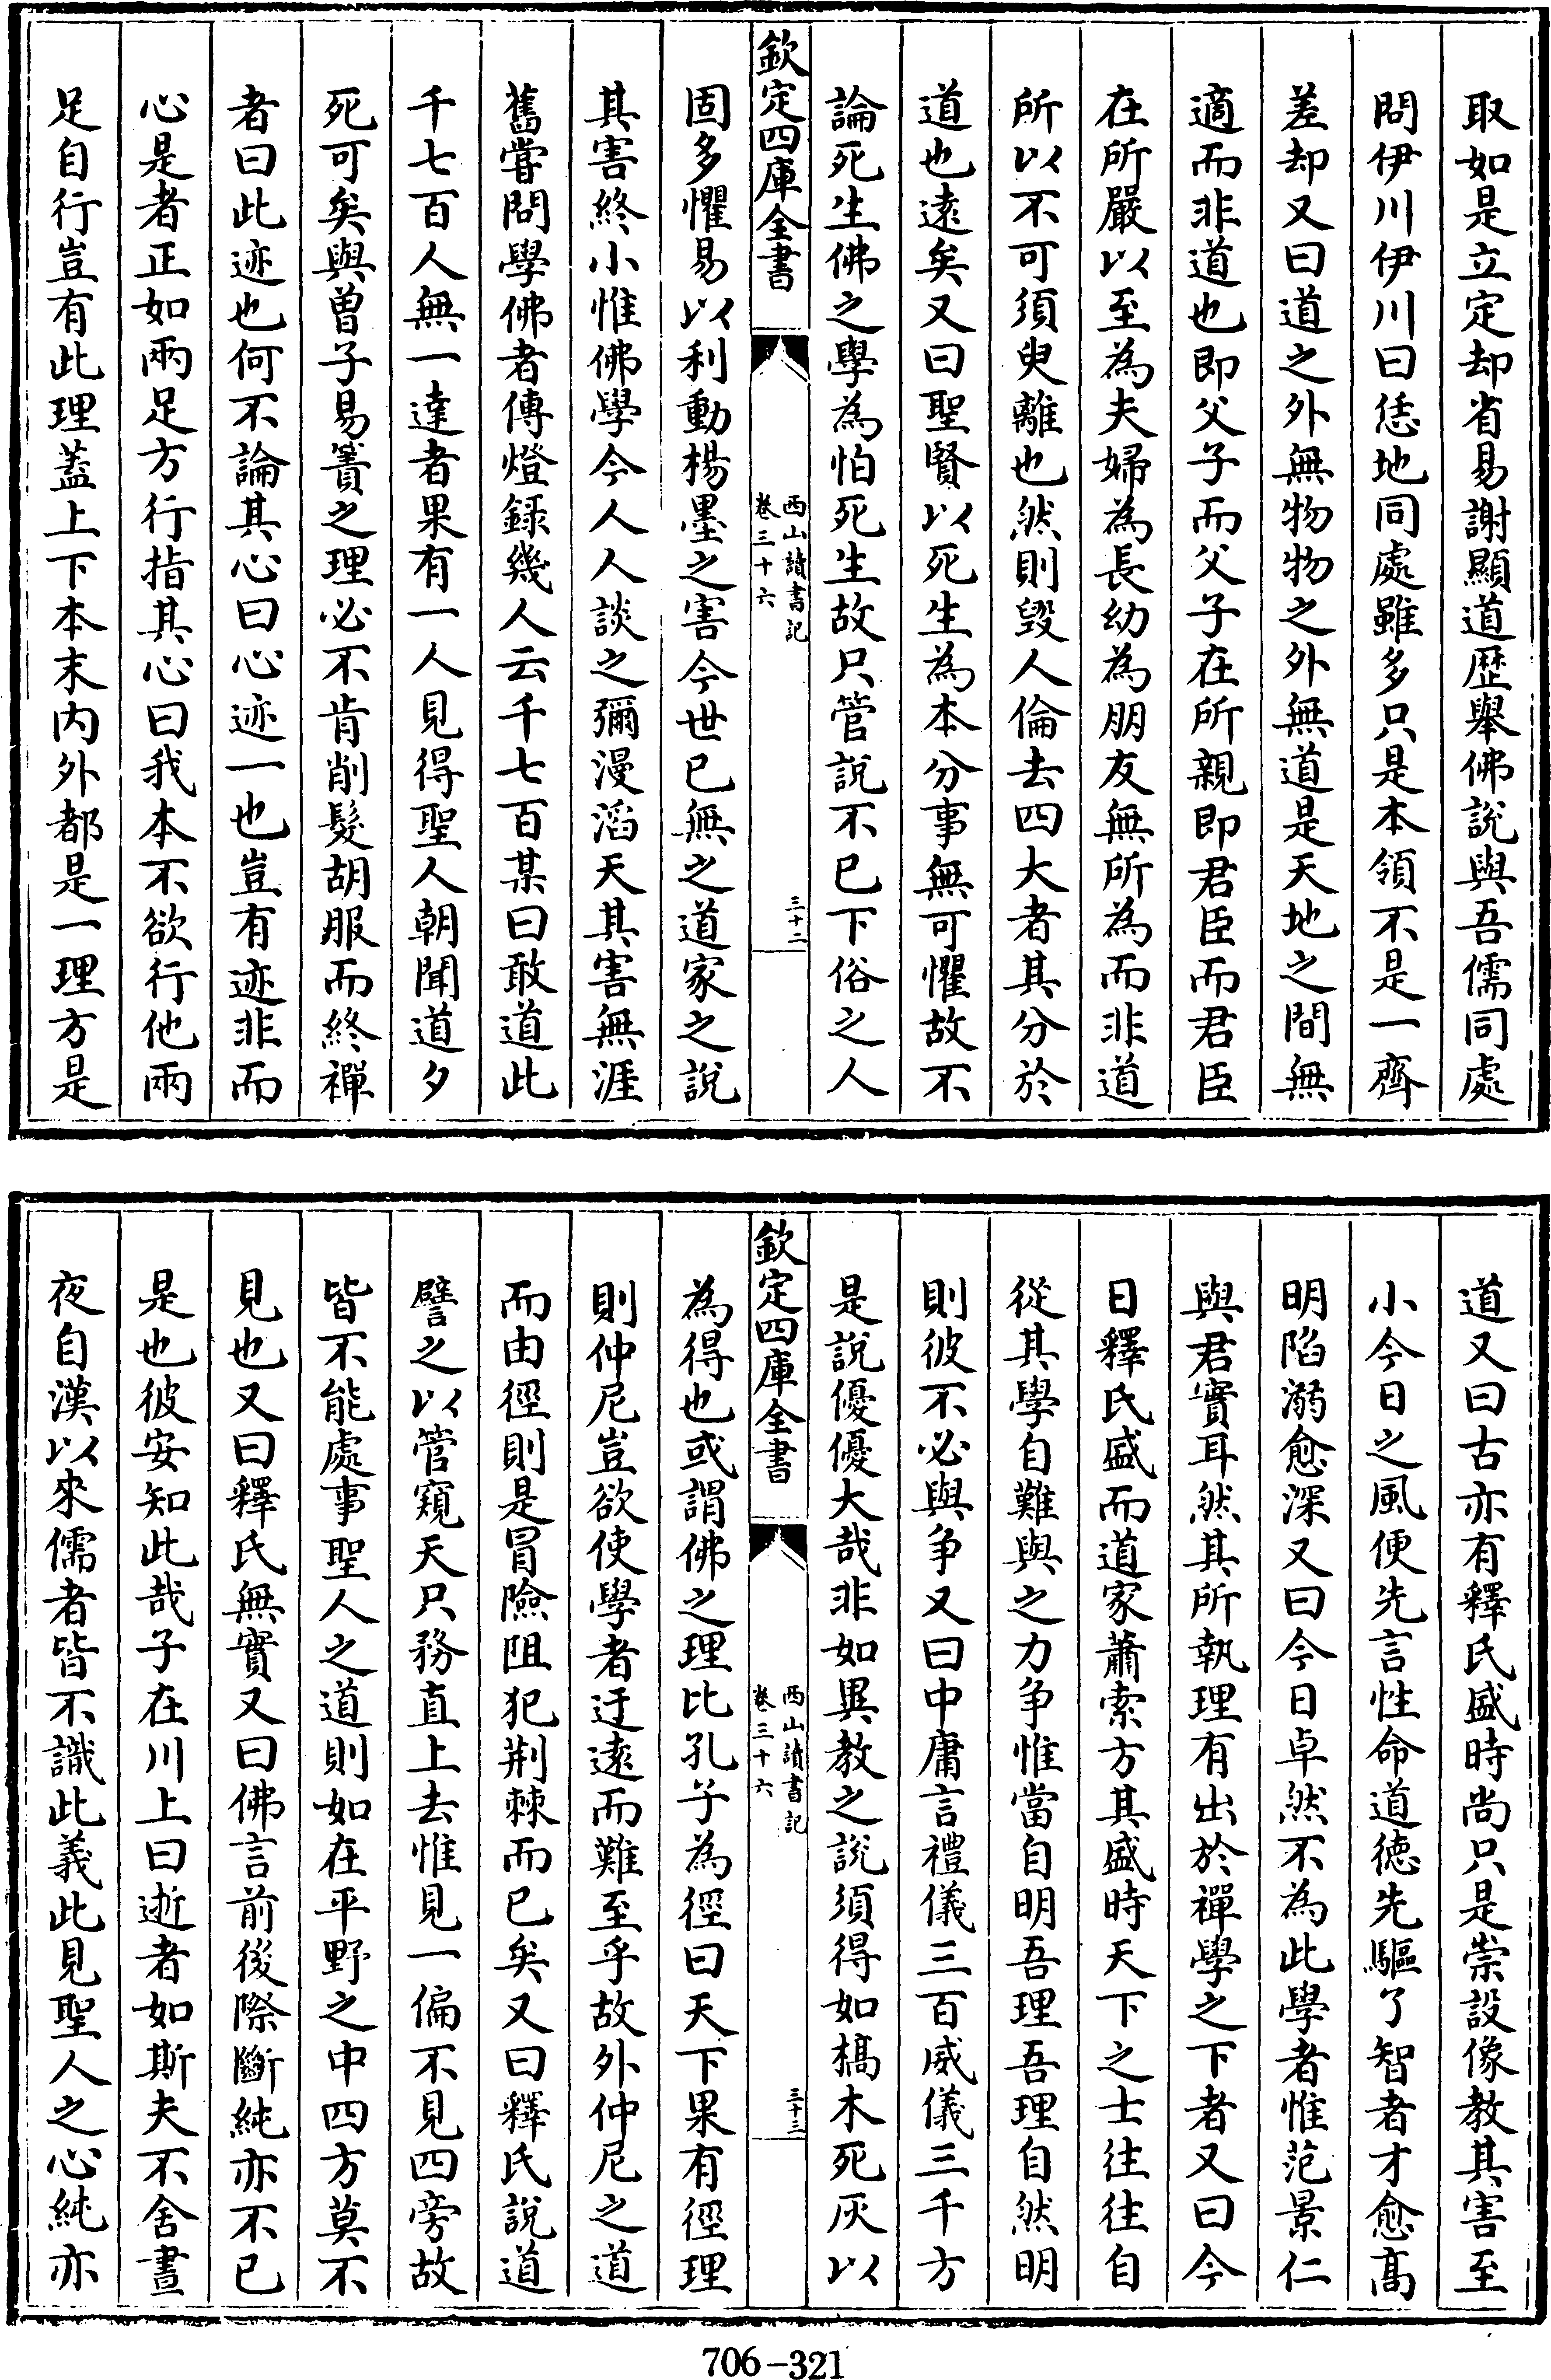 取如是立定却省易謝顯道歴舉佛說與吾儒同處
問伊川伊川曰恁地同處雖多只是本領不是一齊
差却又曰道之外無物物之外無道是天地之間無
適而非道也即父子而父子在所親即君臣而君臣
在所嚴以至為夫婦為長幼為朋友無所為而非道
所以不可須臾離也然則毀人倫去四大者其分於
道也遠矣又曰聖賢以死生為本分事無可懼故不
論死生佛之學為怕死生故只管說不已下俗之人
欽定四庫全書
西山讀書記
卷三十六
三十二
固多懼易以利動楊墨之害今世已無之道家之說
其害終小惟佛學今人人談之彌漫滔天其害無涯
舊嘗問學佛者傳燈録幾人云千七百某曰敢道此
千七百人無一達者果有一人見得聖人朝聞道夕
死可矣與曾子易簀之理必不肯削髮胡服而終禪
者曰此迹也何不論其心曰心迹一也豈有迹非而
心是者正如兩足方行指其心曰我本不欲行他兩
足自行豈有此理蓋上下本末内外都是一理方是
道又曰古亦有釋氏盛時尚只是崇設像教其害至
小今日之風便先言性命道徳先驅了智者才愈髙
明陷溺愈深又曰今日卓然不為此學者惟范景仁
與君實耳然其所執理有出於禪學之下者又曰今
日釋氏盛而道家蕭索方其盛時天下之士往往自
從其學自難與之力争惟當自明吾理吾理自然明
則彼不必與争又曰中庸言禮儀三百威儀三千方
是說優優大哉非如異教之說須得如槁木死灰以
欽定四庫全書
西山讀書記
卷三十六
三十三
為得也或謂佛之理比孔子為徑曰天下果有徑理
則仲尼豈欲使學者迂遠而難至乎故外仲尼之道
而由徑則是冒險阻犯荆棘而已矣又曰釋氏說道
譬之以管窺天只務直上去惟見一偏不見四旁故
皆不能處事聖人之道則如在平野之中四方莫不
見也又曰釋氏無實又曰佛言前後際斷純亦不已
是也彼安知此哉子在川上曰逝者如斯夫不舍晝
夜自漢以來儒者皆不識此義此見聖人之心純亦
706-321